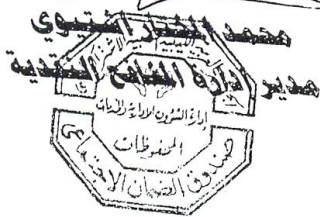 محمد المختار اشتيوي
مدير إدارة المنافع النقدية
إدارة الشؤون الإدارية والخدمات
المحفوظات
صندوق الضمان الاجتماعي